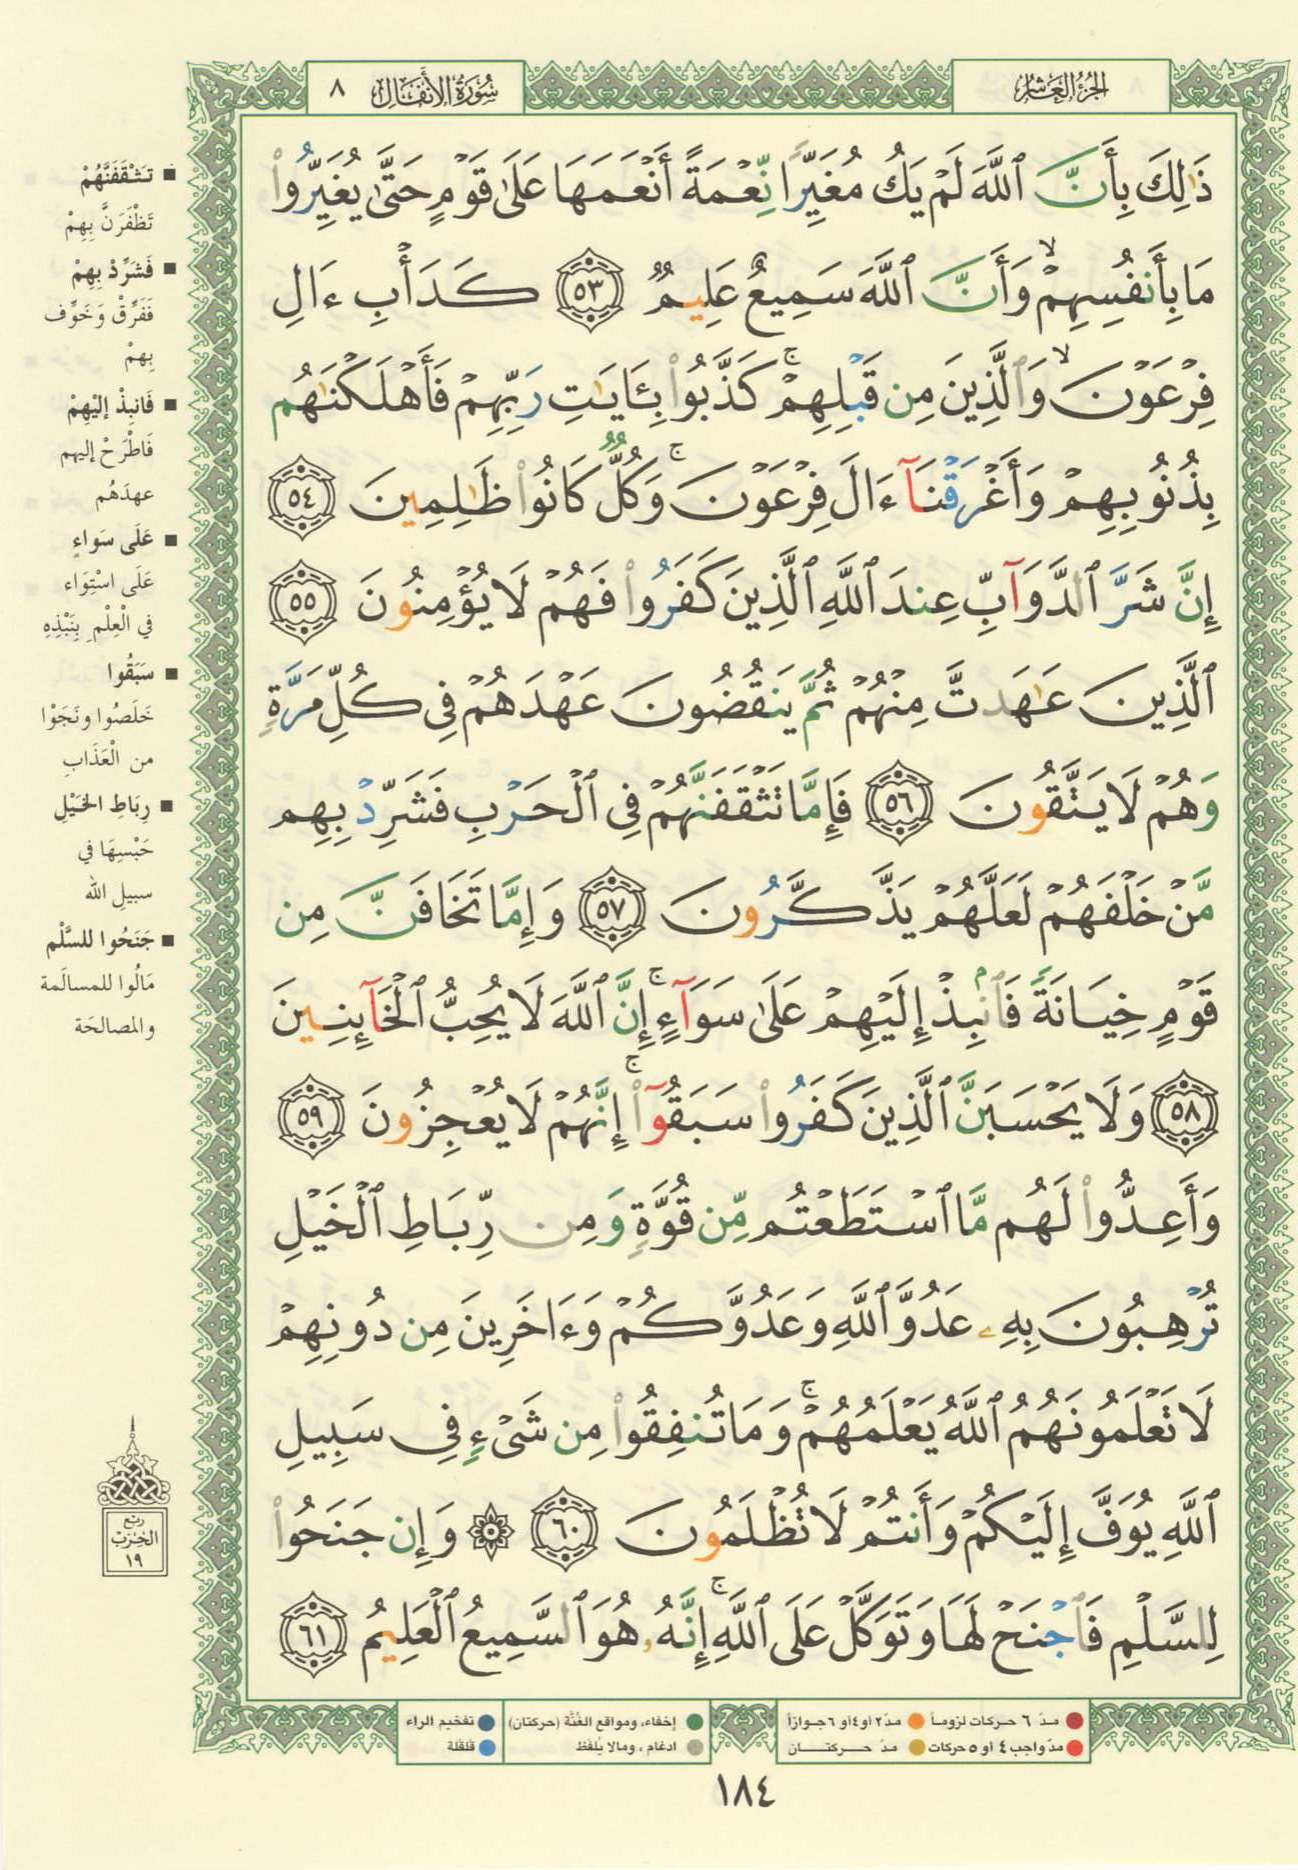 الجزء العاشر
سورة الأنفال ٨
ذَٰلِكَ بِأَنَّ ٱللَّهَ لَمْ يَكُ مُغَيِّرًا نِّعْمَةً أَنْعَمَهَا عَلَىٰ قَوْمٍ حَتَّىٰ يُغَيِّرُوا۟
مَا بِأَنفُسِهِمْ ۙ وَأَنَّ ٱللَّهَ سَمِيعٌ عَلِيمٌ ٥٣ كَدَأْبِ ءَالِ
فِرْعَوْنَ ۙ وَٱلَّذِينَ مِن قَبْلِهِمْ ۚ كَذَّبُوا۟ بِـَٔايَـٰتِ رَبِّهِمْ فَأَهْلَكْنَـٰهُم
بِذُنُوبِهِمْ وَأَغْرَقْنَآ ءَالَ فِرْعَوْنَ ۚ وَكُلٌّ كَانُوا۟ ظَـٰلِمِينَ ٥٤
إِنَّ شَرَّ ٱلدَّوَآبِّ عِندَ ٱللَّهِ ٱلَّذِينَ كَفَرُوا۟ فَهُمْ لَا يُؤْمِنُونَ ٥٥
ٱلَّذِينَ عَـٰهَدتَّ مِنْهُمْ ثُمَّ يَنقُضُونَ عَهْدَهُمْ فِى كُلِّ مَرَّةٍ
وَهُمْ لَا يَتَّقُونَ ٥٦ فَإِمَّا تَثْقَفَنَّهُمْ فِى ٱلْحَرْبِ فَشَرِّدْ بِهِم
مَّنْ خَلْفَهُمْ لَعَلَّهُمْ يَذَّكَّرُونَ ٥٧ وَإِمَّا تَخَافَنَّ مِن
قَوْمٍ خِيَانَةً فَٱنۢبِذْ إِلَيْهِمْ عَلَىٰ سَوَآءٍ ۚ إِنَّ ٱللَّهَ لَا يُحِبُّ ٱلْخَآئِنِينَ
٥٨ وَلَا يَحْسَبَنَّ ٱلَّذِينَ كَفَرُوا۟ سَبَقُوٓا۟ ۚ إِنَّهُمْ لَا يُعْجِزُونَ ٥٩
وَأَعِدُّوا۟ لَهُم مَّا ٱسْتَطَعْتُم مِّن قُوَّةٍ وَمِن رِّبَاطِ ٱلْخَيْلِ
تُرْهِبُونَ بِهِۦ عَدُوَّ ٱللَّهِ وَعَدُوَّكُمْ وَءَاخَرِينَ مِن دُونِهِمْ
لَا تَعْلَمُونَهُمُ ٱللَّهُ يَعْلَمُهُمْ ۚ وَمَا تُنفِقُوا۟ مِن شَىْءٍ فِى سَبِيلِ
ٱللَّهِ يُوَفَّ إِلَيْكُمْ وَأَنتُمْ لَا تُظْلَمُونَ ٦٠ ۞ وَإِن جَنَحُوا۟
لِلسَّلْمِ فَٱجْنَحْ لَهَا وَتَوَكَّلْ عَلَى ٱللَّهِ ۚ إِنَّهُۥ هُوَ ٱلسَّمِيعُ ٱلْعَلِيمُ ٦١
■ تَثْقَفَنَّهُمْ
تَظْفَرَنَّ بِهِمْ
■ فَشَرِّدْ بِهِمْ
فَفَرِّقْ وَخَوِّف
بِهِمْ
■ فَانبِذْ إِلَيْهِمْ
فَاطْرَحْ إليهم
عهدَهُم
■ عَلَى سَوَاءٍ
عَلَى اسْتِوَاء
في الْعِلْمِ بِنَبْذِهِ
■ سَبَقُوا
خَلَصُوا ونَجَوْا
من الْعَذَابِ
■ رِبَاطِ الخَيْلِ
حَبْسِهَا في
سبيلِ الله
■ جَنَحُوا للسَّلْمِ
مَالُوا للمسالَمة
والمصالحَة
ربع
الحزب
١٩
مدّ ٦ حركات لزوماً
مدّ ٢ أو ٤ أو ٦ جوازاً
إخفاء، ومواقع الغُنَّة (حركتان)
تفخيم الراء
مدّ واجب ٤ أو ٥ حركات
مدّ حركتان
ادغام، ومالا يُلفَظ
قلقلة
١٨٤